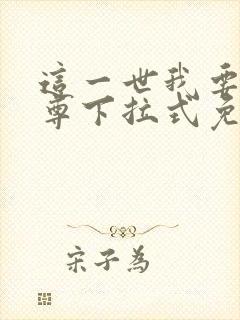 這一世我要
尊下拉式免
宋子為